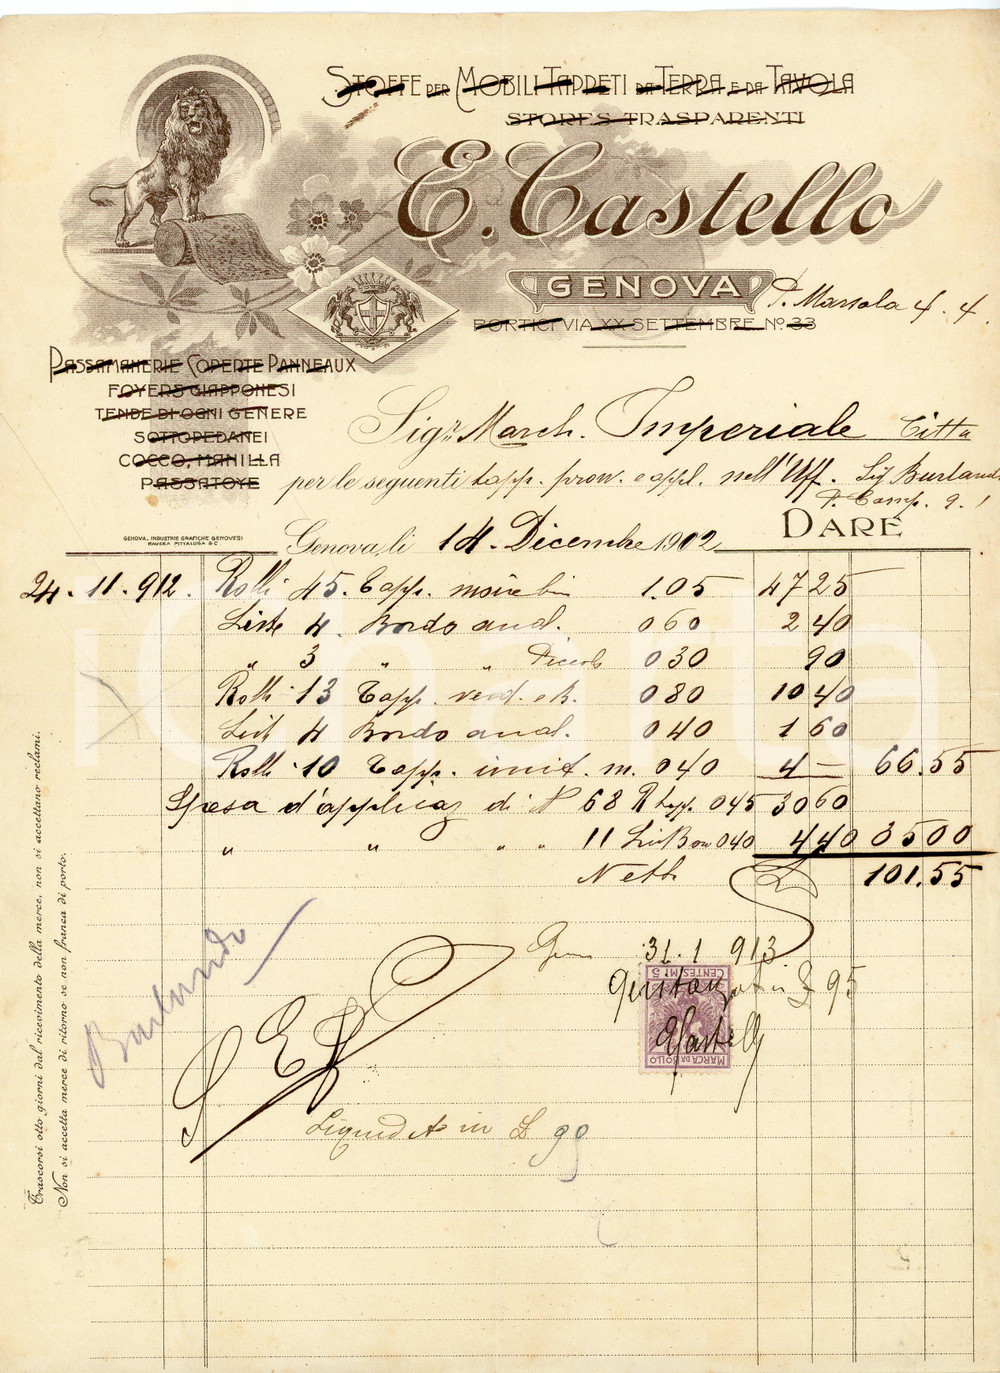 STOFFE PER MOBILI TAPPETI DA TERRA E DA TAVOLA
STORES TRASPARENTI
E. Castello
GENOVA
P. Marsala 4. 4
PORTICI VIA XX SETTEMBRE No. 33
PASSAMANERIE COPERTE PANNEAUX
FOYERS GIAPPONESI
TENDE DI OGNI GENERE
SOTTOPEDANEI
COCCO, MANILLA
PASSATOYE
Sigr. March. Imperiale Città
per le seguenti tapp. prov. e appl. nell'Uff. Sig Burlando
P. Camp. 9. 1
GENOVA, INDUSTRIE GRAFICHE GENOVESI
RAVERA PITTALUGA & C
Genova, li 14. Dicembre 1902
DARE
24. 11. 912. Rolli 45. Tapp. moirè 1.05 47 25
Liste 4. Bordo and. 0 60 2 40
" 3 " " Piccolo 0 30 90
Rolli 13 Tapp. verd. 0 80 10 40
List 4 Bordo and. 0 40 1 60
Rolli 10 Tapp. imit. m. 0 40 4 — 66.55
Spesa d'applicaz di N 68 R tapp. 0 45 30 60
" " " " 11 List Bor 0 40 4 40 35 00
Netto £ 101.55
31. 1 913
CENTESIMI 5
Quietanzat in £ 95
ECastello
MARCA DA BOLLO
Burlando
Liquidato in £ 99
Trascorsi otto giorni dal ricevimento della merce, non si accettano reclami.
Non si accetta merce di ritorno se non franca di porto.